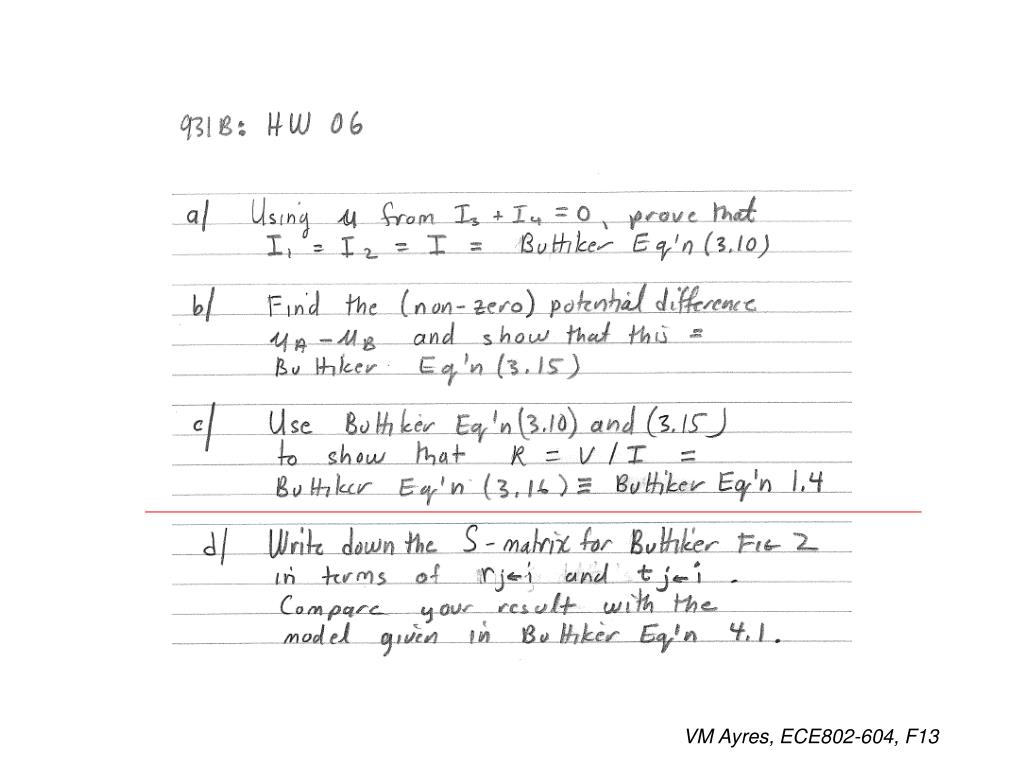 931B: HW 06
a/ Using μ from I3 + I4 = 0, prove that
I1 = I2 = I = Buttiker Eq'n (3.10)
b/ Find the (non-zero) potential difference
μA - μB and show that this =
Buttiker Eq'n (3.15)
c/ Use Buttiker Eq'n (3.10) and (3.15)
to show that R = V / I =
Buttiker Eq'n (3.16) ≡ Buttiker Eq'n 1.4
d/ Write down the S-matrix for Buttiker FIG 2
in terms of rj←i and tj←i .
Compare your result with the
model given in Buttiker Eq'n 4.1.
VM Ayres, ECE802-604, F13